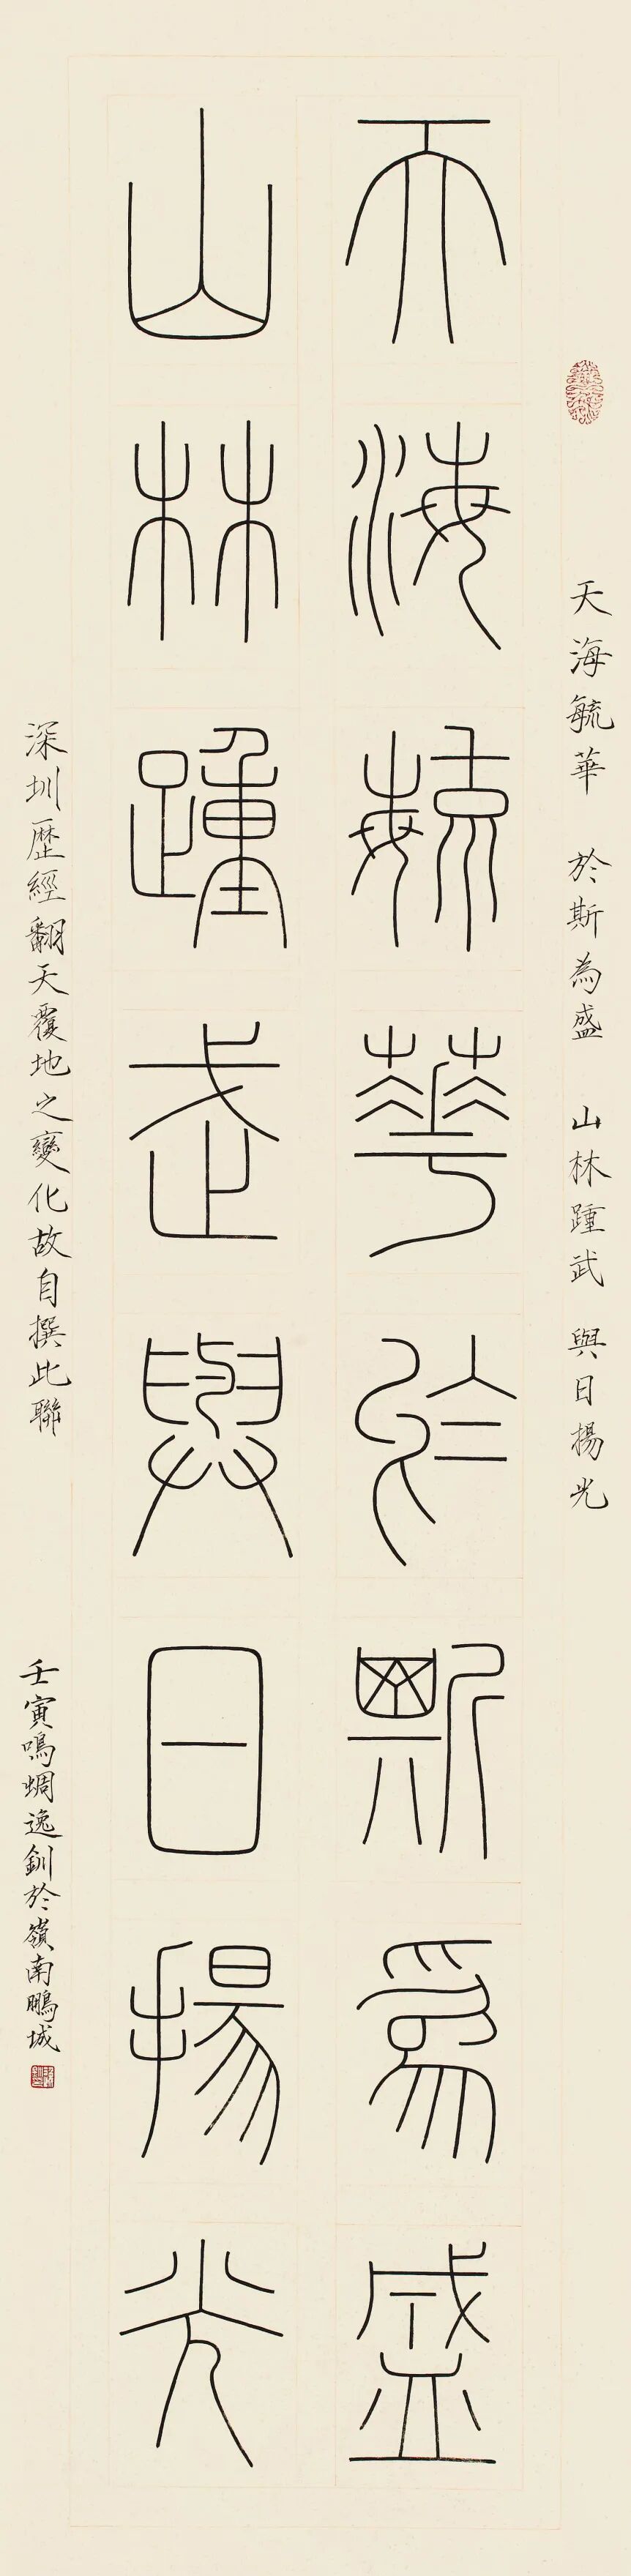 天海毓華　於斯為盛　山林踵武　與日揚光
天海毓華於斯為盛
山林踵武與日揚光
深圳歷經翻天覆地之變化故自撰此聯
壬寅鳴蜩逸釧於嶺南鵬城